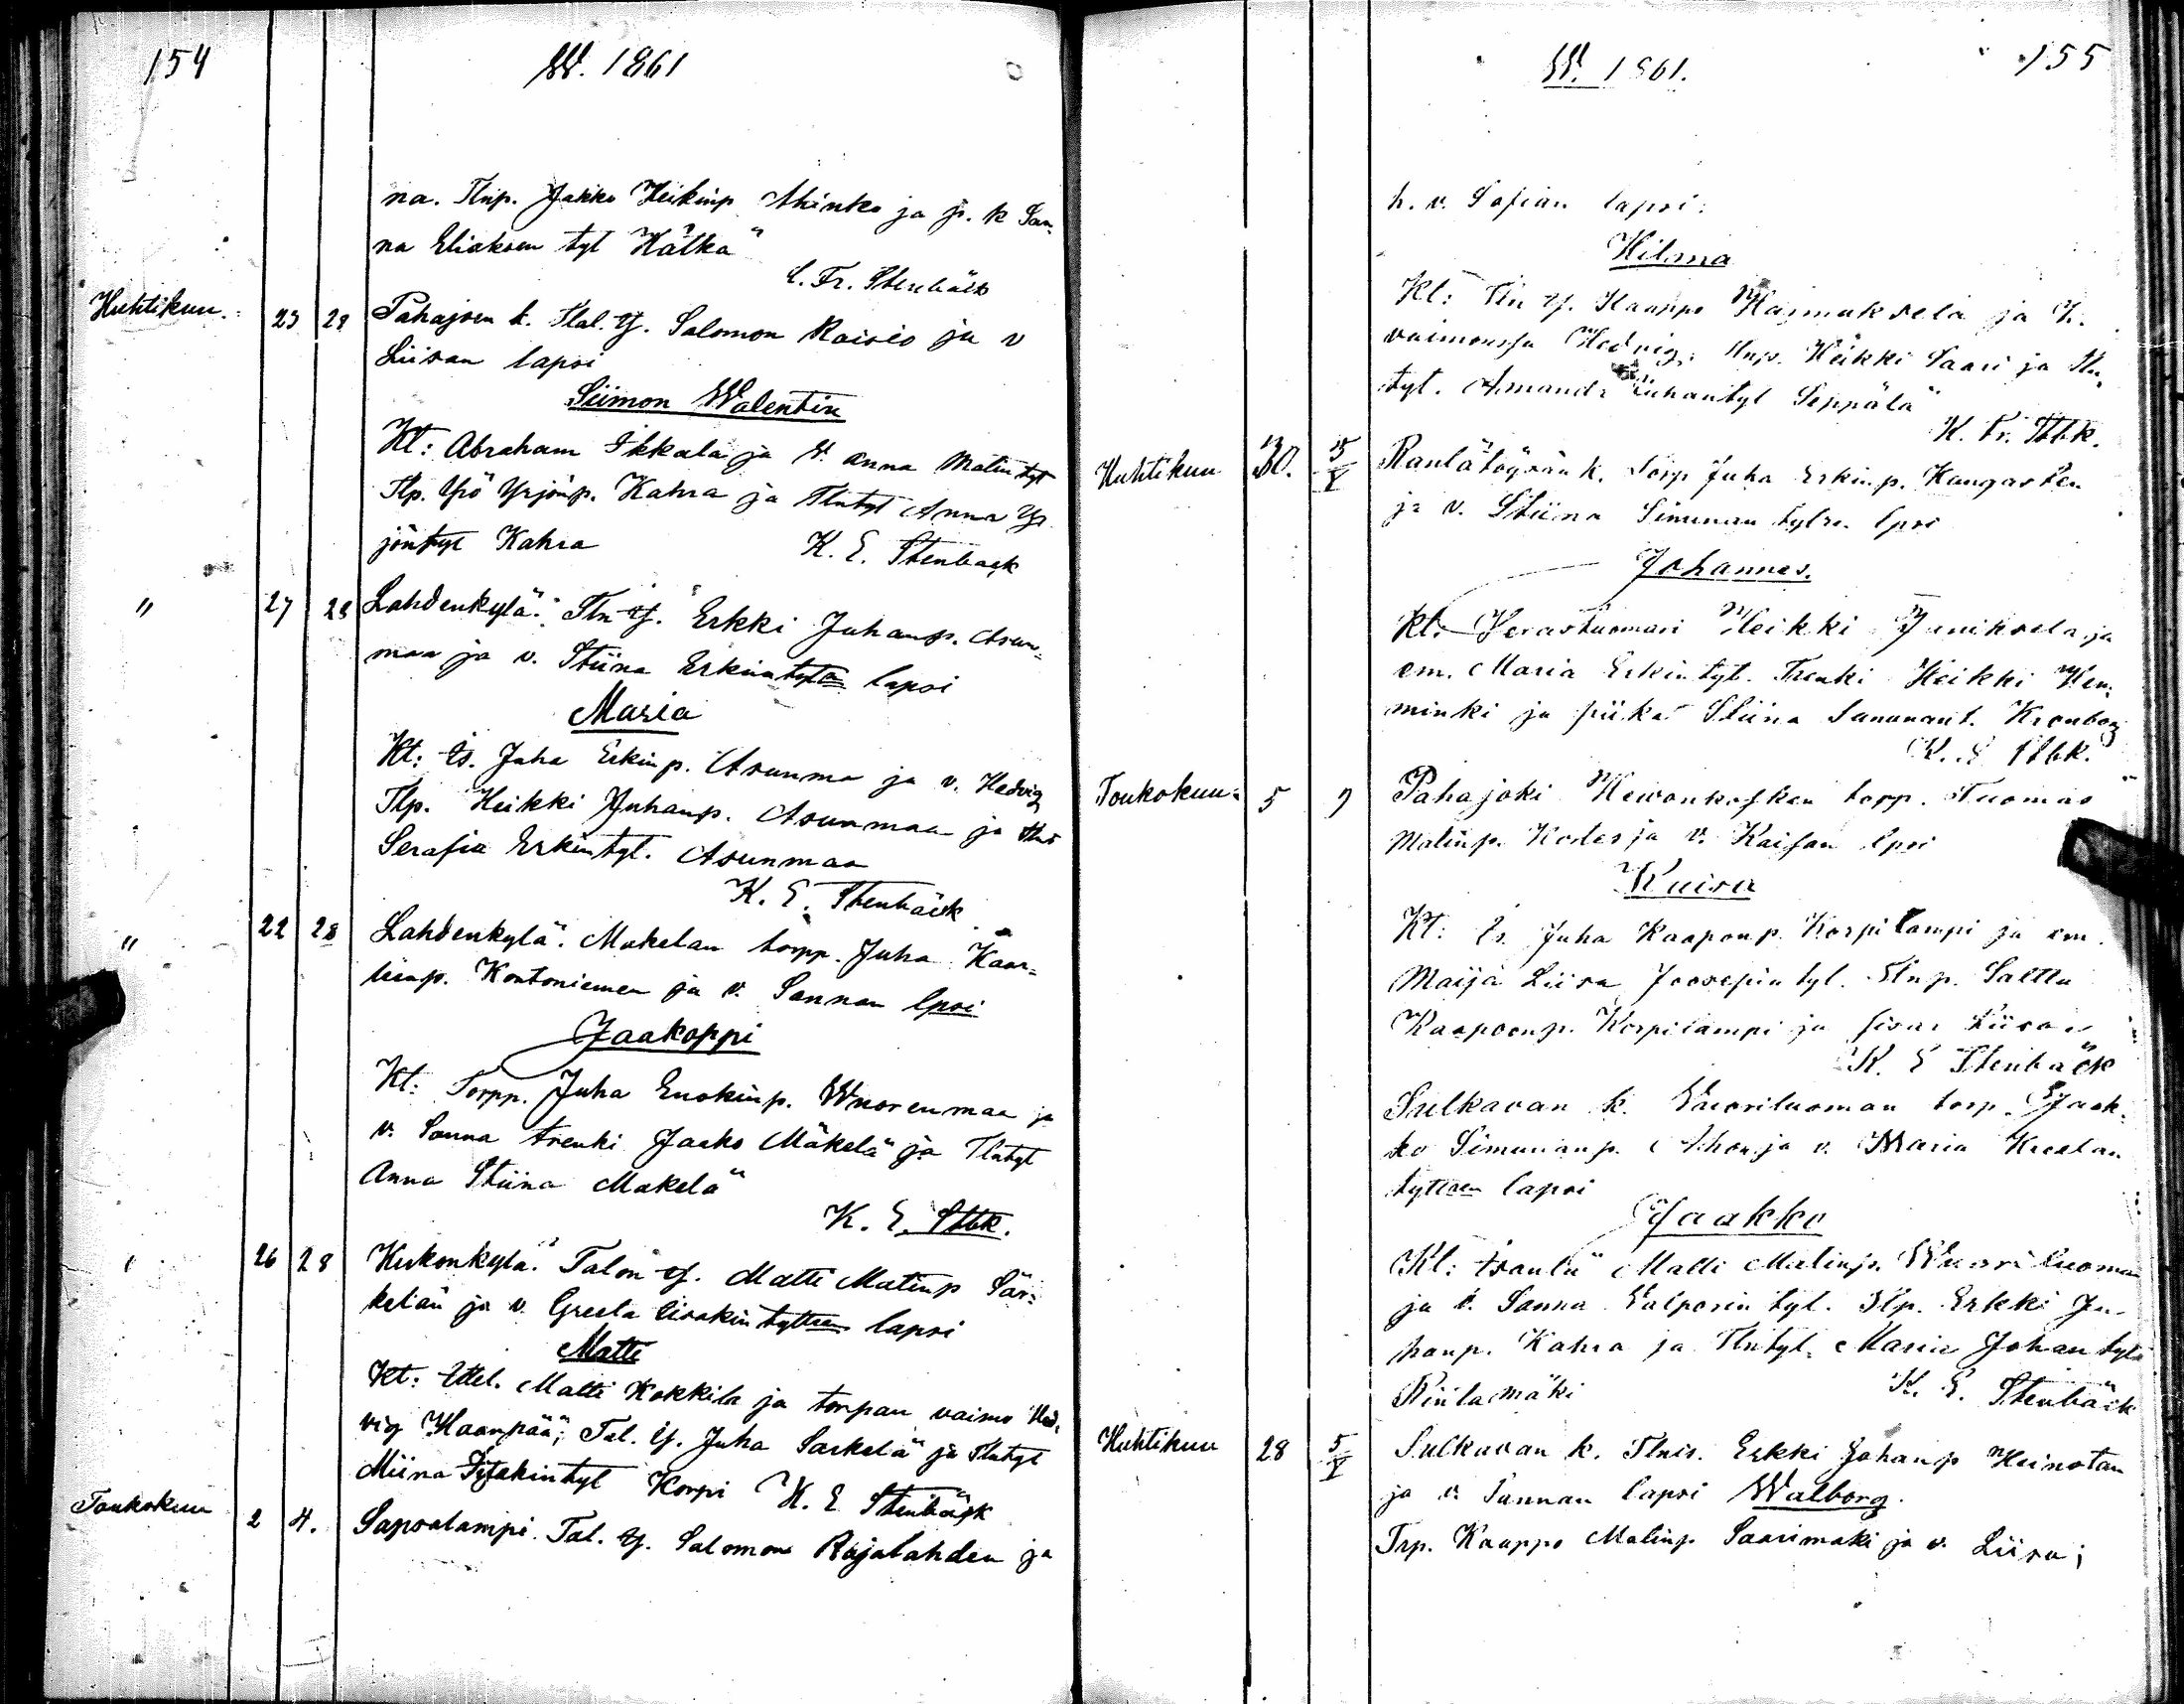 154
W. 1861
na. Tlnp. Jakko Heikinp Ahinko ja p. k San-
na Eliaksen tyt Hätkä
C. Fr. Stenbäck
Huhtikuu. 23 28 Pahajoen k. Tlal. ej. Salomon Raisio ja v
Liisan lapsi
Siimon Walentin
Kt: Abraham Ikkala ja V. Anna Matintyt
Tlp. Yrjö Yrjönp. Kahra ja Tlntyt Anna Yr
jöntyt Kahra K. E. Stenback
" 27 28 Lahdenkylä. Tln ej. Erkki Juhanp. Asun-
maa ja v. Stiina Erkintytn lapsi
Maria
Kt: Is. Juha Erkinp. Asunma ja v. Hedvig
Tlp. Heikki Juhanp. Asunmaa ja
Serafia Erkintyt. Asunmaa
K. E. Stenbäck
" 22 28 Lahdenkylä. Makelan torpp. Juha Kaar-
linp. Kontoniemen ja v. Sannan lpsi
Jaakoppi
Kt: Torpp. Juha Enokinp. Wuorenmaa ja
v. Sanna trenki Jaako Mäkelä ja Tlntyt
Anna Stiina Makelä
K. E. Stbk.
" 26 28 Kukonkylä. Talon ej. Matti Matinp Sär-
kelän ja v. Greeta Eisakin tyttren lapsi
Matti
Kt: Ittel. Matti Kokkila ja torpan vaimo Hed-
vig Haanpää; Tal. ej. Juha Sarkelä ja Tlntyt
Miina Iisakintyt Korpi K. E Stenbäck
Toukokuu 2 4. Sapsalampi. Tal. ej. Salomon Rajalahden ja
W. 1861. 155
h. v. Sofian lapsi:
Hilma
Kt: Tln ej. Kaappo Hajmuksela ja h.
vaimonsa Hedvig; Tlnp. Heikki Saari ja Tln
tyt. Amanda Juhantyt Seppälä
K. Fr. Stbk.
Huhtikuu 30. 5/V Rantatöysän k. Torp Juha Erkinp. Kangasten
ja v. Stiina Simunan tytrn lpsi
Johannes.
Kt: Herastuomari Heikki Janiksela ja
em. Maria Erkintyt. Trenki Heikki Hem-
minki ja piika Stiina Simunant. Kronborg
K. E Stbk.
Toukokuu 5 9 Pahajoki Hewonkosken torpp. Tuomas
Matinp. Kodes ja v. Kaisan lpsi
Kaisa
Kt: Is. Juha Kaaponp. Korpilampi ja em.
Maija Liisa Joosepin tyt. Tlnp. Salttu
Kaaponp. Korpilampi ja sisar Liisa
K. E Stenbäck
Sulkavan k. Vuoriluoman torp. Jaak-
ko Simunanp. Ahon ja v. Maria Kreetan
tyttren lapsi
Jaakko
Kt: isäntä Matti Matinp. Wuoriluoman
ja v. Sanna Valporin tyt. Tlp. Erkki Ju-
hanp. Kahra ja Tlntyt. Maria Johantyt
Riilamäki K. E. Stenbäck
Huhtikuu 28 5/V Sulkavan k. Tlnis. Erkki Johanp Keinotan
ja v. Sannan lapsi Walborg.
Trp. Kaappo Matinp Saarimaki ja v. Liisa;